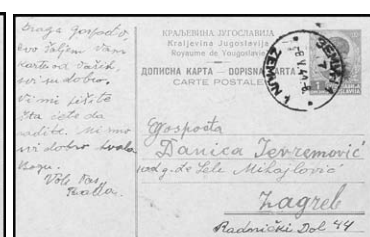 Draga gospođo,
evo šaljem Vam
kartu od Vaših,
svi su dobro.
Vi mi pišite
šta ćete da
radite. Mi smo
svi dobro hvala
Bogu.
Vole Vas
КРАЉЕВИНА ЈУГОСЛАВИЈА
Kraljevina Jugoslavija
Royaume de Yougoslavie
ДОПИСНА КАРТА — DOPISNA KARTA
CARTE POSTALE
ЗЕМУН 4
ZEMUN 4
Gospođa
Danica Jevremović
kod g. de Lele Mihajlović
Zagreb
Radnički Dol 44